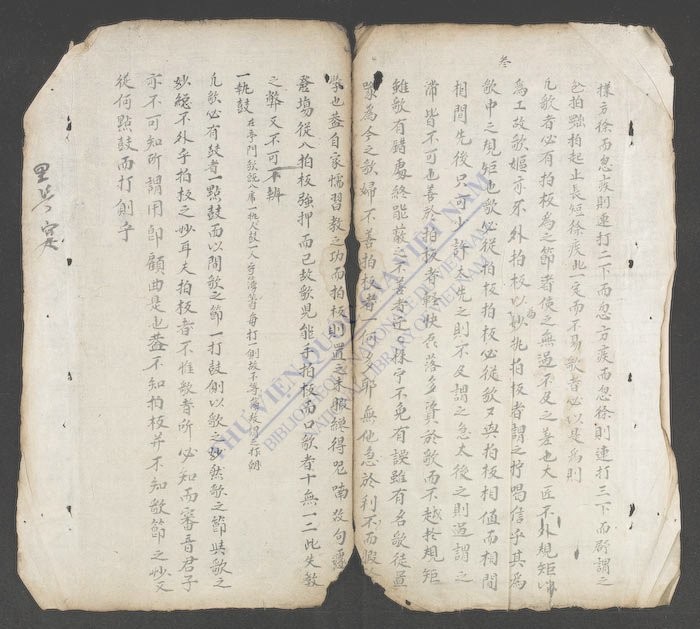 叁
樣方徐而忽疾則連打二下而忽方疾而忽徐則連打三下而 謂之
 拍强拍起止長短徐疾此一定而不易歌者必以是爲則
凡歌者必有拍板爲之節者使之無過不及之差也大匠不外規矩以
爲工故歌嫗亦不外拍板以爲妙 拍板者謂之 唱信乎其爲
歌中之規矩也歌必從拍板拍板必從歌又與拍板相值而相間
相間先後只可少許太先之則不及謂之急太後之則過謂之
滯皆不可也善於拍板者輕快 落多資於歌而不越於規矩
雖歌有錯處終能蔽之不善者 樣字不免有誤雖有名歌徒
 爲今之歌婦不善拍板者何多耶無他急於利不而暇
 也蓋自家慣習教之功而拍板則置之未暇纔得 喃 句
登場從人拍板强押而已故歌兒能手拍板而口歌者十無一二此失教
之弊又不可不辨
一執鼓
凡歌必有 者一點鼓而以間歌之節一打鼓則以歌之 然歌之節與歌之
妙總不外乎拍板之妙耳夫拍板者不惟歌者所必知而審音君子
亦不可知所謂用 顧曲是也蓋不知拍板并不知歌節之妙又
從何點鼓而打則乎
THƯ VIỆN QUỐC GIA VIỆT NAM
BIBLIOTHEQUE NATIONALE DU VIETNAM
NATIONAL LIBRARY OF VIETNAM